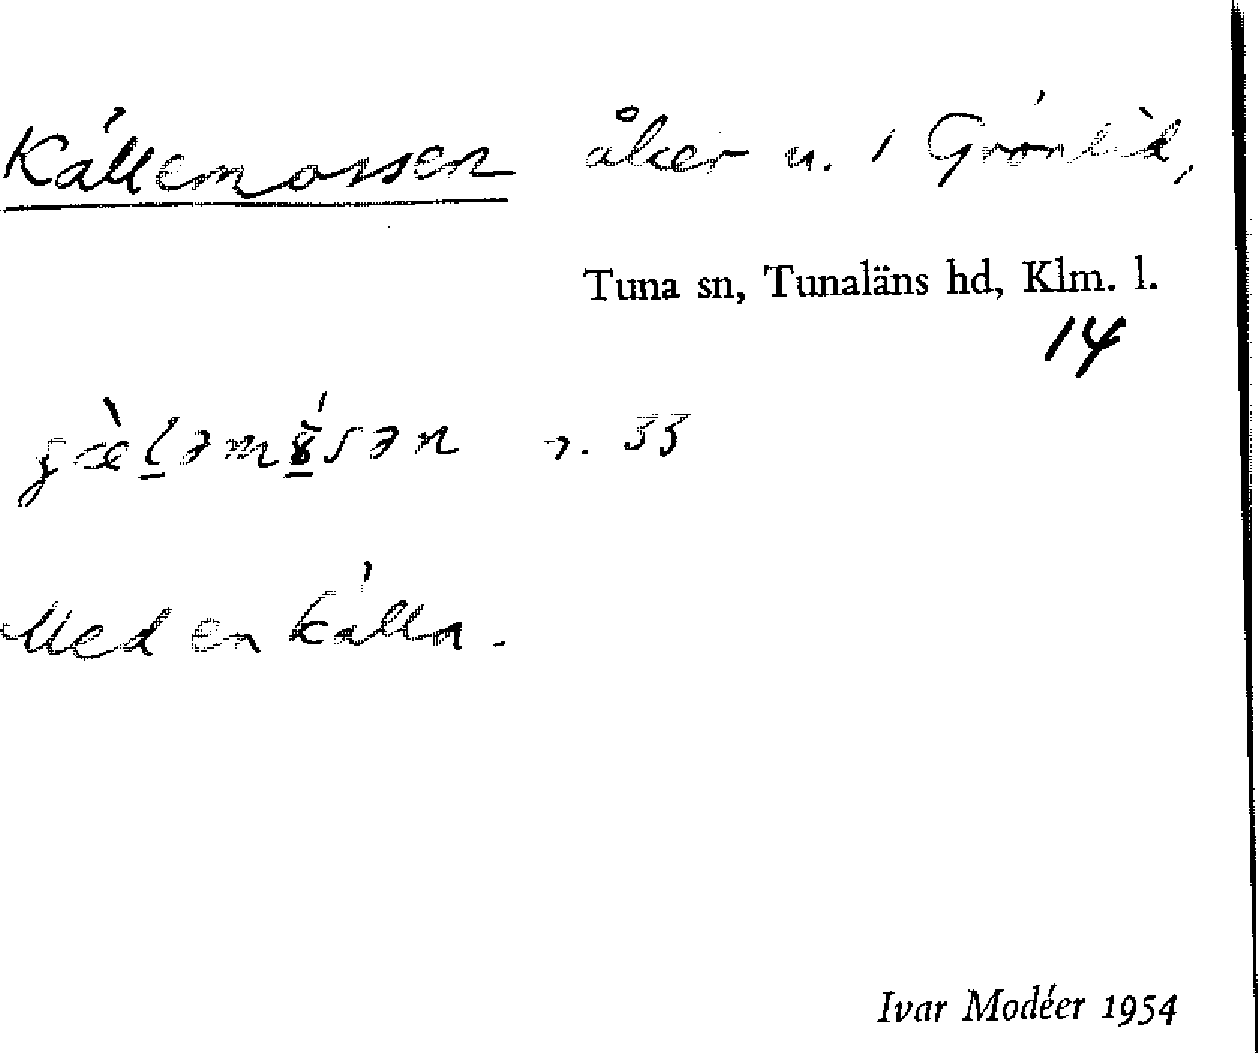 Källemossen åker u. 1 Grönlid,
Tuna sn, Tunaläns hd, Klm. l.
14
33
Med en källa.
Ivar Modéer 1954